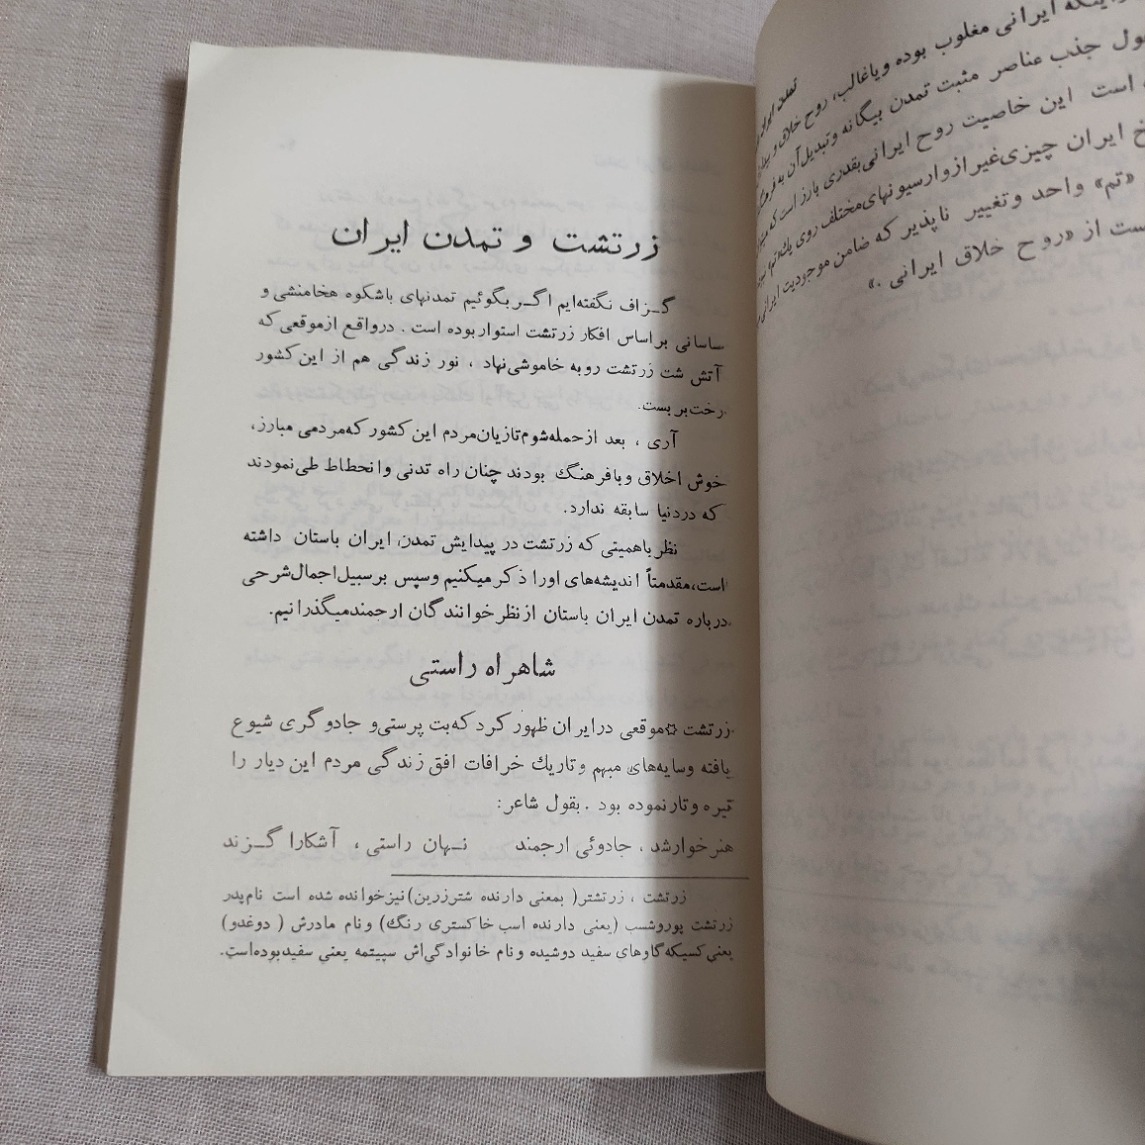 اینکه ایرانی مغلوب بوده ویاغالب، روح خلاق و
ول جذب عناصر مثبت تمدن بیگانه وتبدیل آن به
است این خاصیت روح ایرانی بقدری بارز است که
خ ایران چیزی غیر از واریسونهای مختلف روی یك «تم»
«تم» واحد و تغییر ناپذیر که ضامن موجودیت ایرانی
ست از «روح خلاق ایرانی .»
زرتشت و تمدن ایران
گـزاف نگفته‌ایم اگـر بگوئیم تمدنهای باشکوه هخامنشی و
ساسانی براساس افکار زرتشت استوار بوده است . درواقع ازموقعی که
آتش شت زرتشت روبه خاموشی نهاد ، نور زندگی هم از این کشور
رخت بر بست.
آری ، بعد ازحمله شوم تازیان مردم این کشور که مردمی مبارز،
خوش اخلاق وبافرهنگ بودند چنان راه تدنی وانحطاط طی نمودند
که دردنیا سابقه ندارد.
نظر باهمیتی که زرتشت در پیدایش تمدن ایران باستان داشته
است،مقدمتاً اندیشه‌های اورا ذکر میکنیم وسپس بر سبیل اجمال شرحی
درباره تمدن ایران باستان از نظر خوانندگان ارجمند میگذرانیم.
شاهراه راستی
زرتشت ✡موقعی درایران ظهور کرد که بت پرستی و جادوگری شیوع
یافته وسایه‌های مبهم وتاریك خرافات افق زندگی مردم این دیار را
تیره وتار نموده بود . بقول شاعر:
هنر خوار شد ، جادوئی ارجمند نـهان راستی ، آشکارا گـزند
زرتشت ، زرتشتر( بمعنی دارنده شتر زرین) نیز خوانده شده است نام پدر
زرتشت پوروشسب (یعنی دارنده اسب خاکستری رنگ) ونام مادرش ( دوغدو)
یعنی کسیکه گاوهای سفید دوشیده ونام خانوادگی‌اش سپیتمه یعنی سفید بوده است.